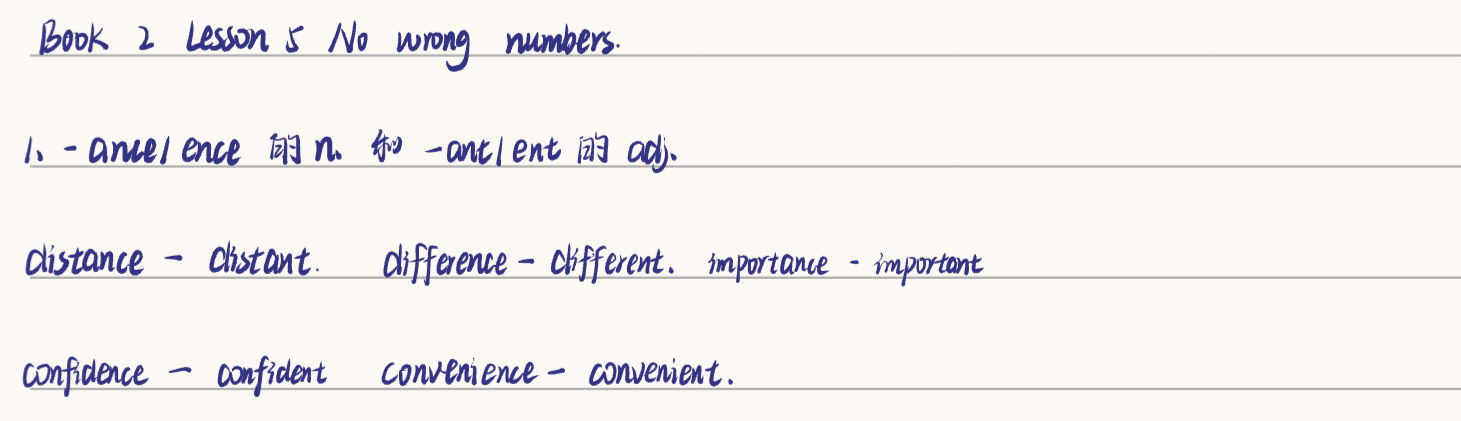 Book 2 Lesson 5 No wrong numbers.
1、-ance/ence 的n. 和 -ant/ent 的 adj.
distance - distant. difference - different. importance - important
confidence - confident convenience - convenient.